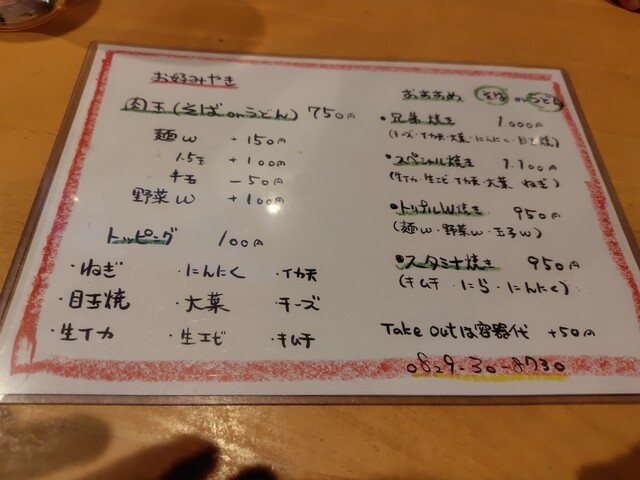 お好みやき
肉玉(そばorうどん) 750円
麺W +150円
1.5玉 +100円
半玉 -50円
野菜W +100円
トッピング 100円
・ねぎ ・にんにく ・イカ天
・目玉焼 ・大葉 ・チーズ
・生イカ ・生エビ ・キムチ
おすすめ そば orうどん
・兄弟焼き 1,000円
(チーズ・イカ天・大葉・にんにく・目玉焼)
・スペシャル焼き 1,100円
(生イカ・生エビ イカ天・大葉 ねぎ)
・トリプルW焼き 950円
(麺W・野菜W・玉子W)
・スタミナ焼き 950円
(キムチ・にら・にんにく)
Take outは容器代 +50円
0829-30-8730